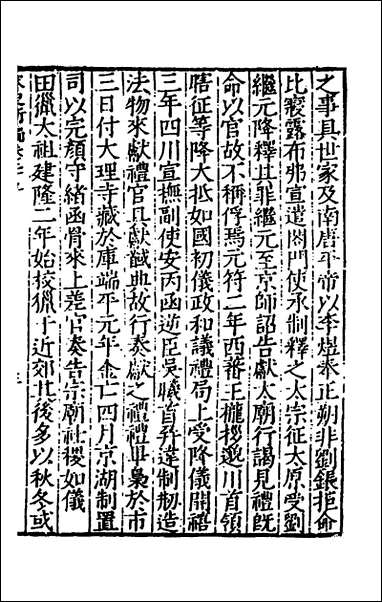 之事具世家及南唐平帝以李煜奉正朔非劉鋹拒命
比寢露布弗宣遣閤門使承制釋之太宗征太原受劉
繼元降釋其罪繼元至京師詔告獻太廟行謁見禮旣
命以官故不稱俘焉元符二年西蕃王攏拶邈川首領
瞎征等降大抵如國初儀政和議禮局上受降儀開禧
三年四川宣撫副使安丙函逆臣吳曦首并違制刱造
法物來獻禮官具獻馘典故行奏獻之禮禮畢梟於市
三日付大理寺藏於庫端平元年金亡四月京湖制置
司以完顏守緒函骨來上差官奏告宗廟社稷如儀
田獵太祖建隆二年始挍獵于近郊其後多以秋冬或